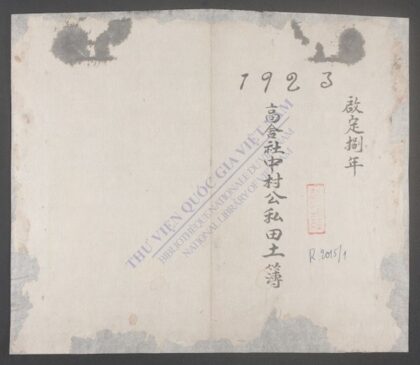 1923
啟定捌年
高舍社中村公私田土簿
R.2015/1
THƯ VIỆN QUỐC GIA VIỆT NAM
BIBLIOTHÈQUE NATIONALE DU VIETNAM
NATIONAL LIBRARY OF VIETNAM